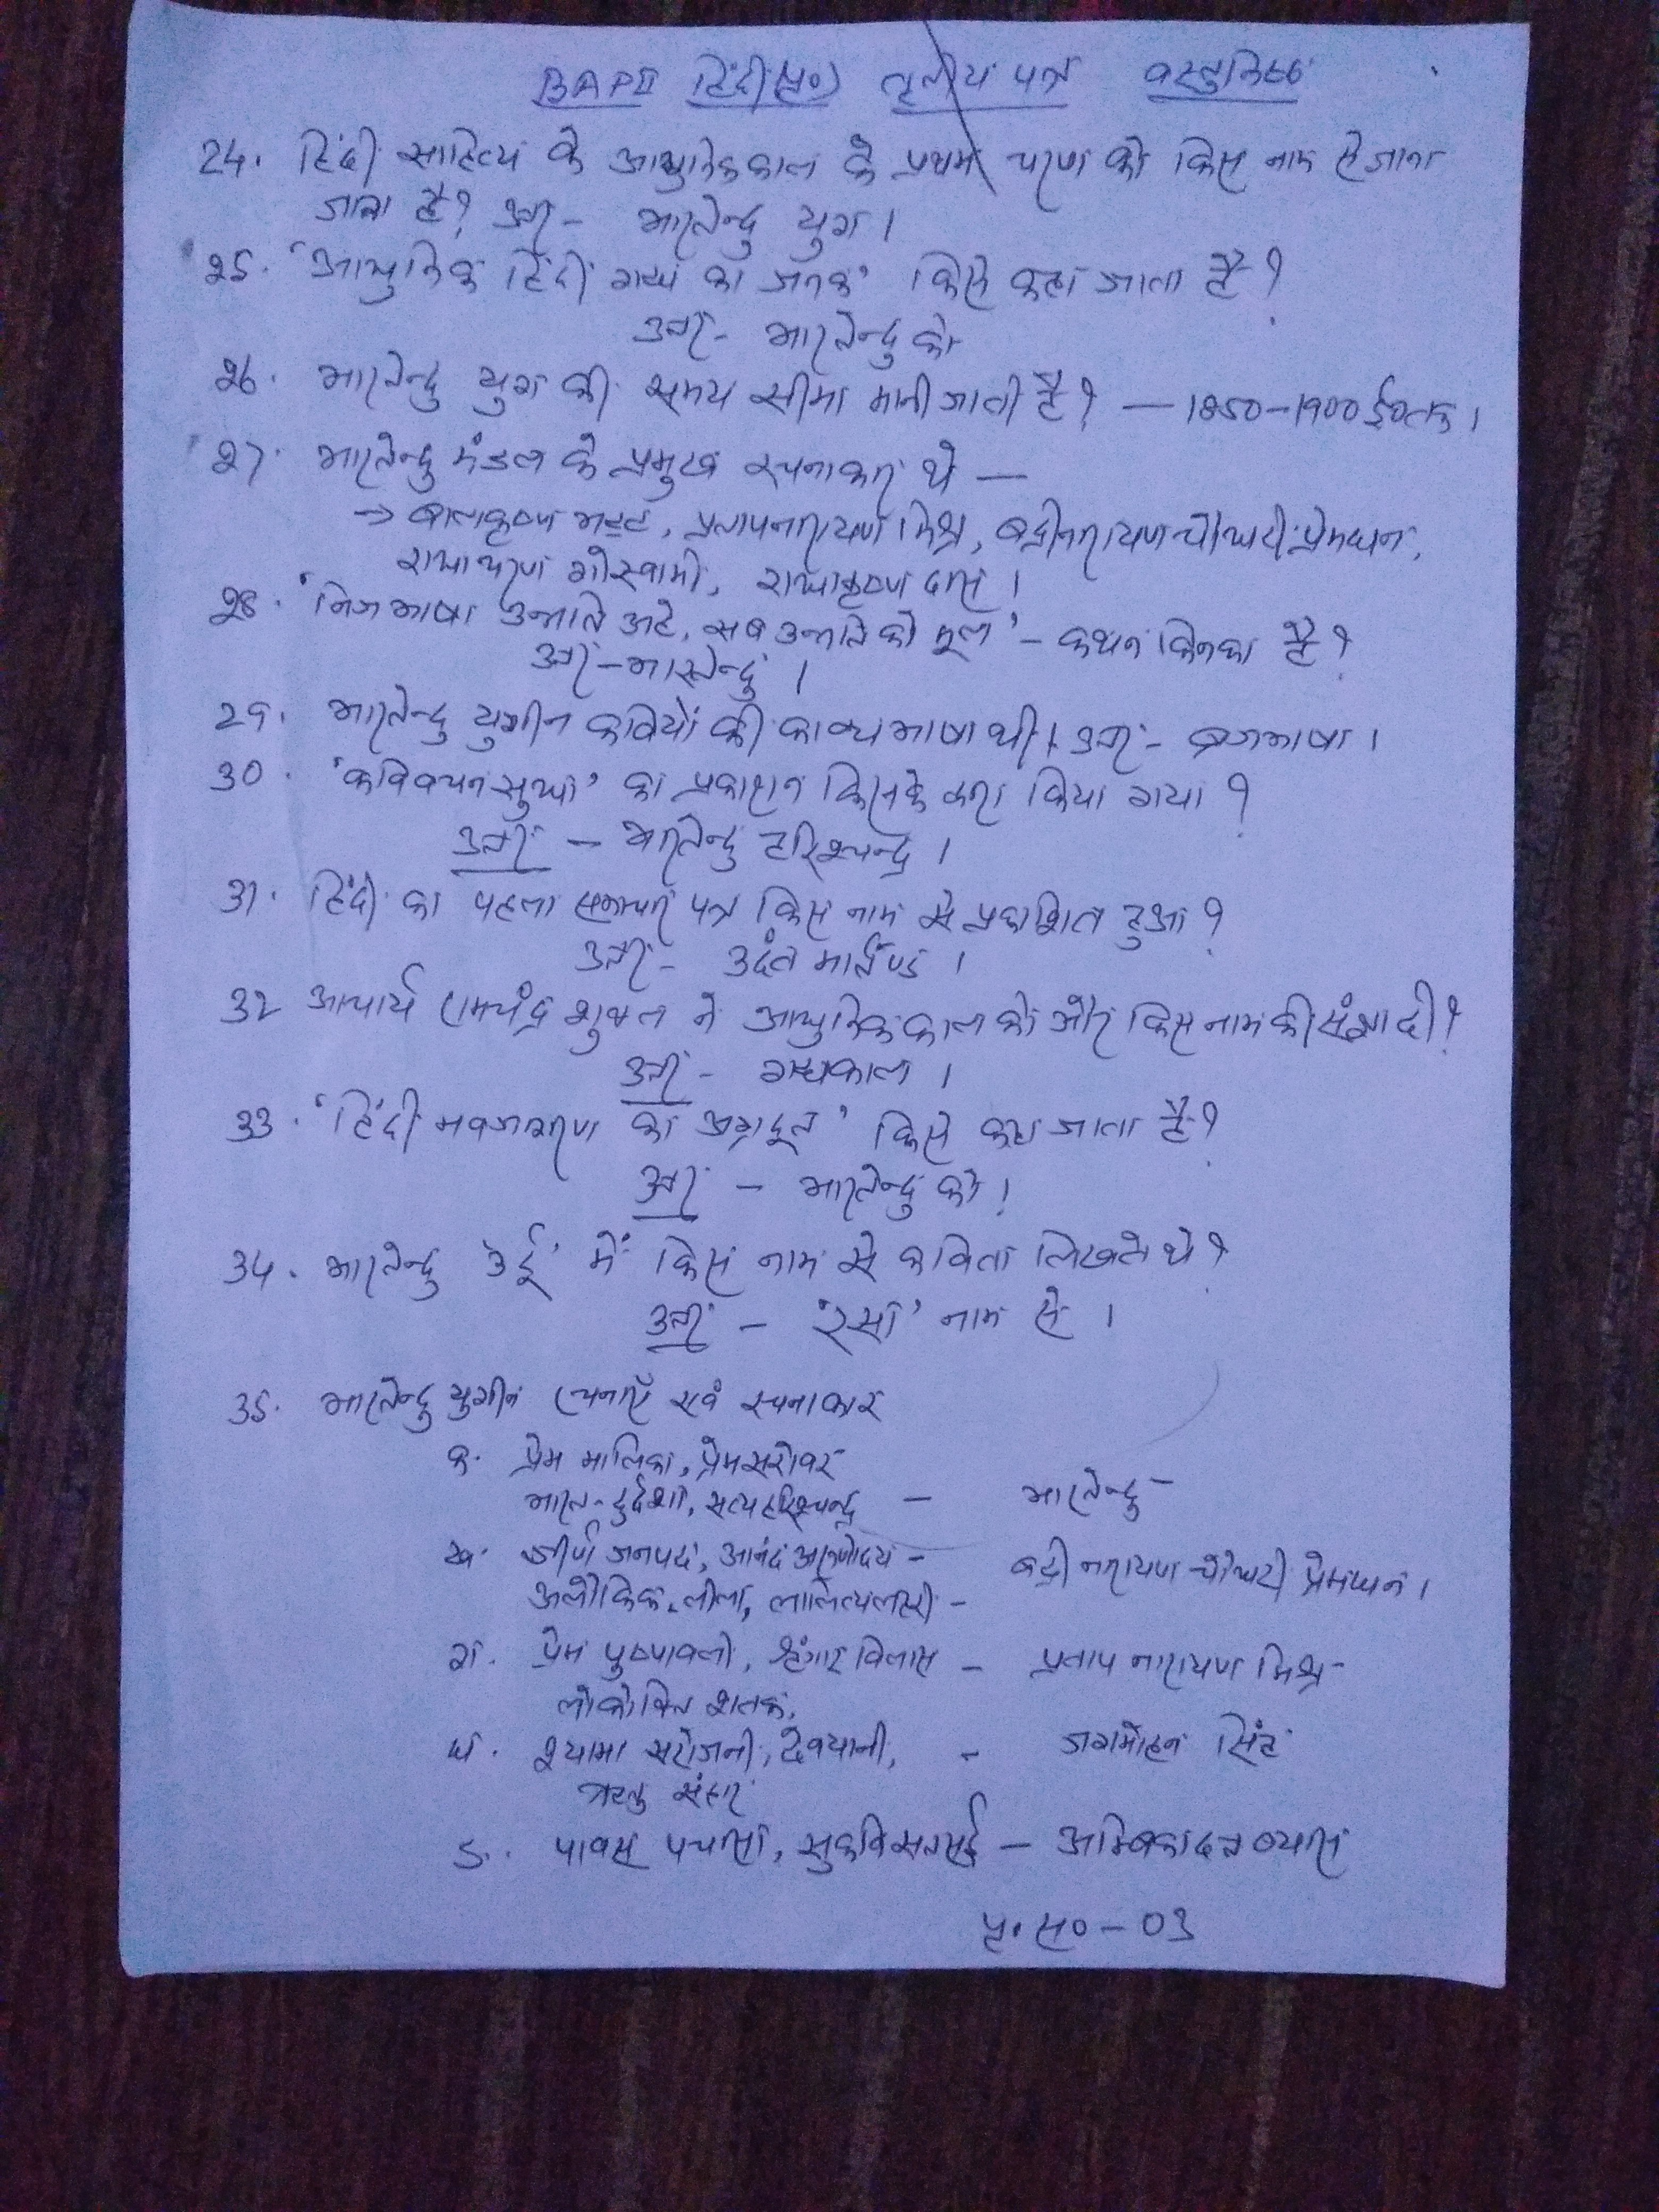 BAPII हिंदी(प्र०) तृतीय पत्र वस्तुनिष्ठ
24. हिंदी साहित्य के आधुनिककाल के प्रथम चरण को किस नाम से जाना
जाता है? उत्तर- भारतेन्दु युग।
25. 'आधुनिक हिंदी गद्य का जनक' किसे कहा जाता है?
उत्तर- भारतेन्दु को
26. भारतेन्दु युग की समय सीमा मानी जाती है? — 1850-1900 ई० तक।
27. भारतेन्दु मंडल के प्रमुख रचनाकार थे —
→ बालकृष्ण भट्ट, प्रतापनारायण मिश्र, बद्रीनारायण चौधरी प्रेमघन,
राधाचरण गोस्वामी, राधाकृष्ण दास।
28. 'निज भाषा उन्नति अहै, सब उन्नति को मूल' - कथन किनका है?
उत्तर-भारतेन्दु।
29. भारतेन्दु युगीन कवियों की काव्यभाषा थी। उत्तर- ब्रजभाषा।
30. 'कविवचनसुधा' का प्रकाशन किसके द्वारा किया गया?
उत्तर - भारतेन्दु हरिश्चन्द्र।
31. हिंदी का पहला समाचार पत्र किस नाम से प्रकाशित हुआ?
उत्तर- उदंत मार्तण्ड।
32 आचार्य रामचंद्र शुक्ल ने आधुनिककाल को और किस नाम की संज्ञा दी?
उत्तर - गद्यकाल।
33. 'हिंदी नवजागरण का अग्रदूत' किसे कहा जाता है?
उत्तर - भारतेन्दु को।
34. भारतेन्दु उर्दू में किस नाम से कविता लिखते थे?
उत्तर - 'रसा' नाम से।
35. भारतेन्दु युगीन रचनाएँ एवं रचनाकार
क. प्रेम मालिका, प्रेमसरोवर
भारत-दुर्दशा, सत्यहरिश्चन्द्र - भारतेन्दु
ख. जीर्ण जनपद, आनंद अरुणोदय - बद्री नारायण चौधरी प्रेमघन।
अलौकिक लीला, लालित्यलहरी -
ग. प्रेम पुष्पावली, श्रृंगार विलास - प्रताप नारायण मिश्र
लोकोक्ति शतक,
घ. श्यामा सरोजनी, देवयानी, - जगमोहन सिंह
ऋतु संहार
ङ. पावस पचासा, सुकवि सतसई - अम्बिकादत्त व्यास
पृ. सं० - 03